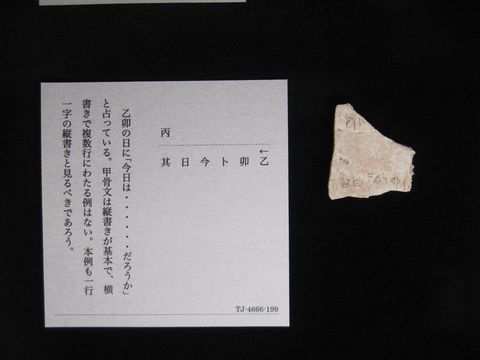 丙
←
乙卯卜今日其
乙卯の日に「今日は・・・・・・だろうか」
と占っている。甲骨文は縦書きが基本で、横
書きで複数行にわたる例はない。本例も一行
一字の縦書きと見るべきであろう。
TJ-4666-199